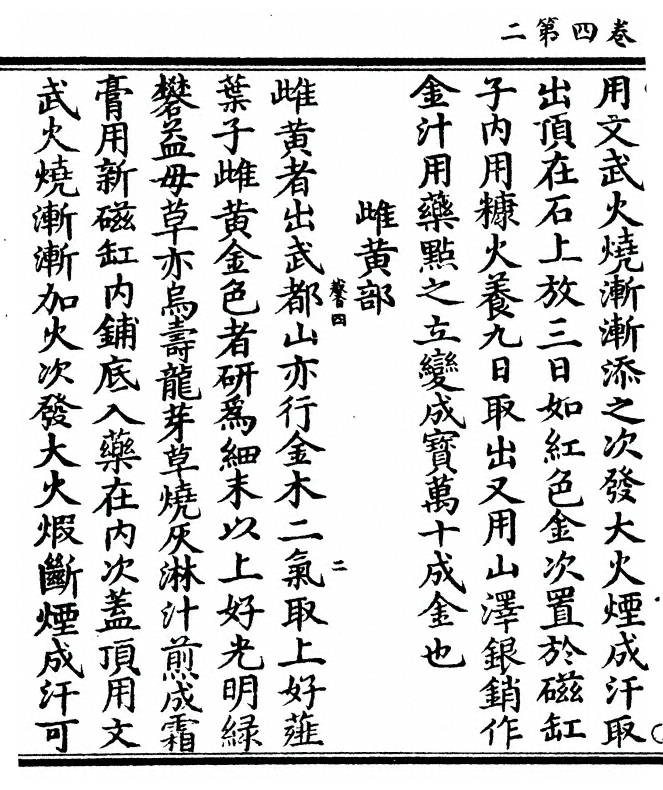 卷四第二
用文武火燒漸漸添之次發大火煙成汗取
出頂在石上放三日如紅色金次置於磁缸
子內用糠火養九日取出又用山澤銀銷作
金汁用藥點之立變成寶萬十成金也
雌黃部
雌黃者出武都山亦行金木二氣取上好蓷
葉子雌黃金色者研為細末以上好光明緑
礬益母草亦烏壽龍芽草燒灰淋汁煎成霜
膏用新磁缸內鋪底入藥在內次蓋頂用文
武火燒漸漸加火次發大火煆斷煙成汗可
二